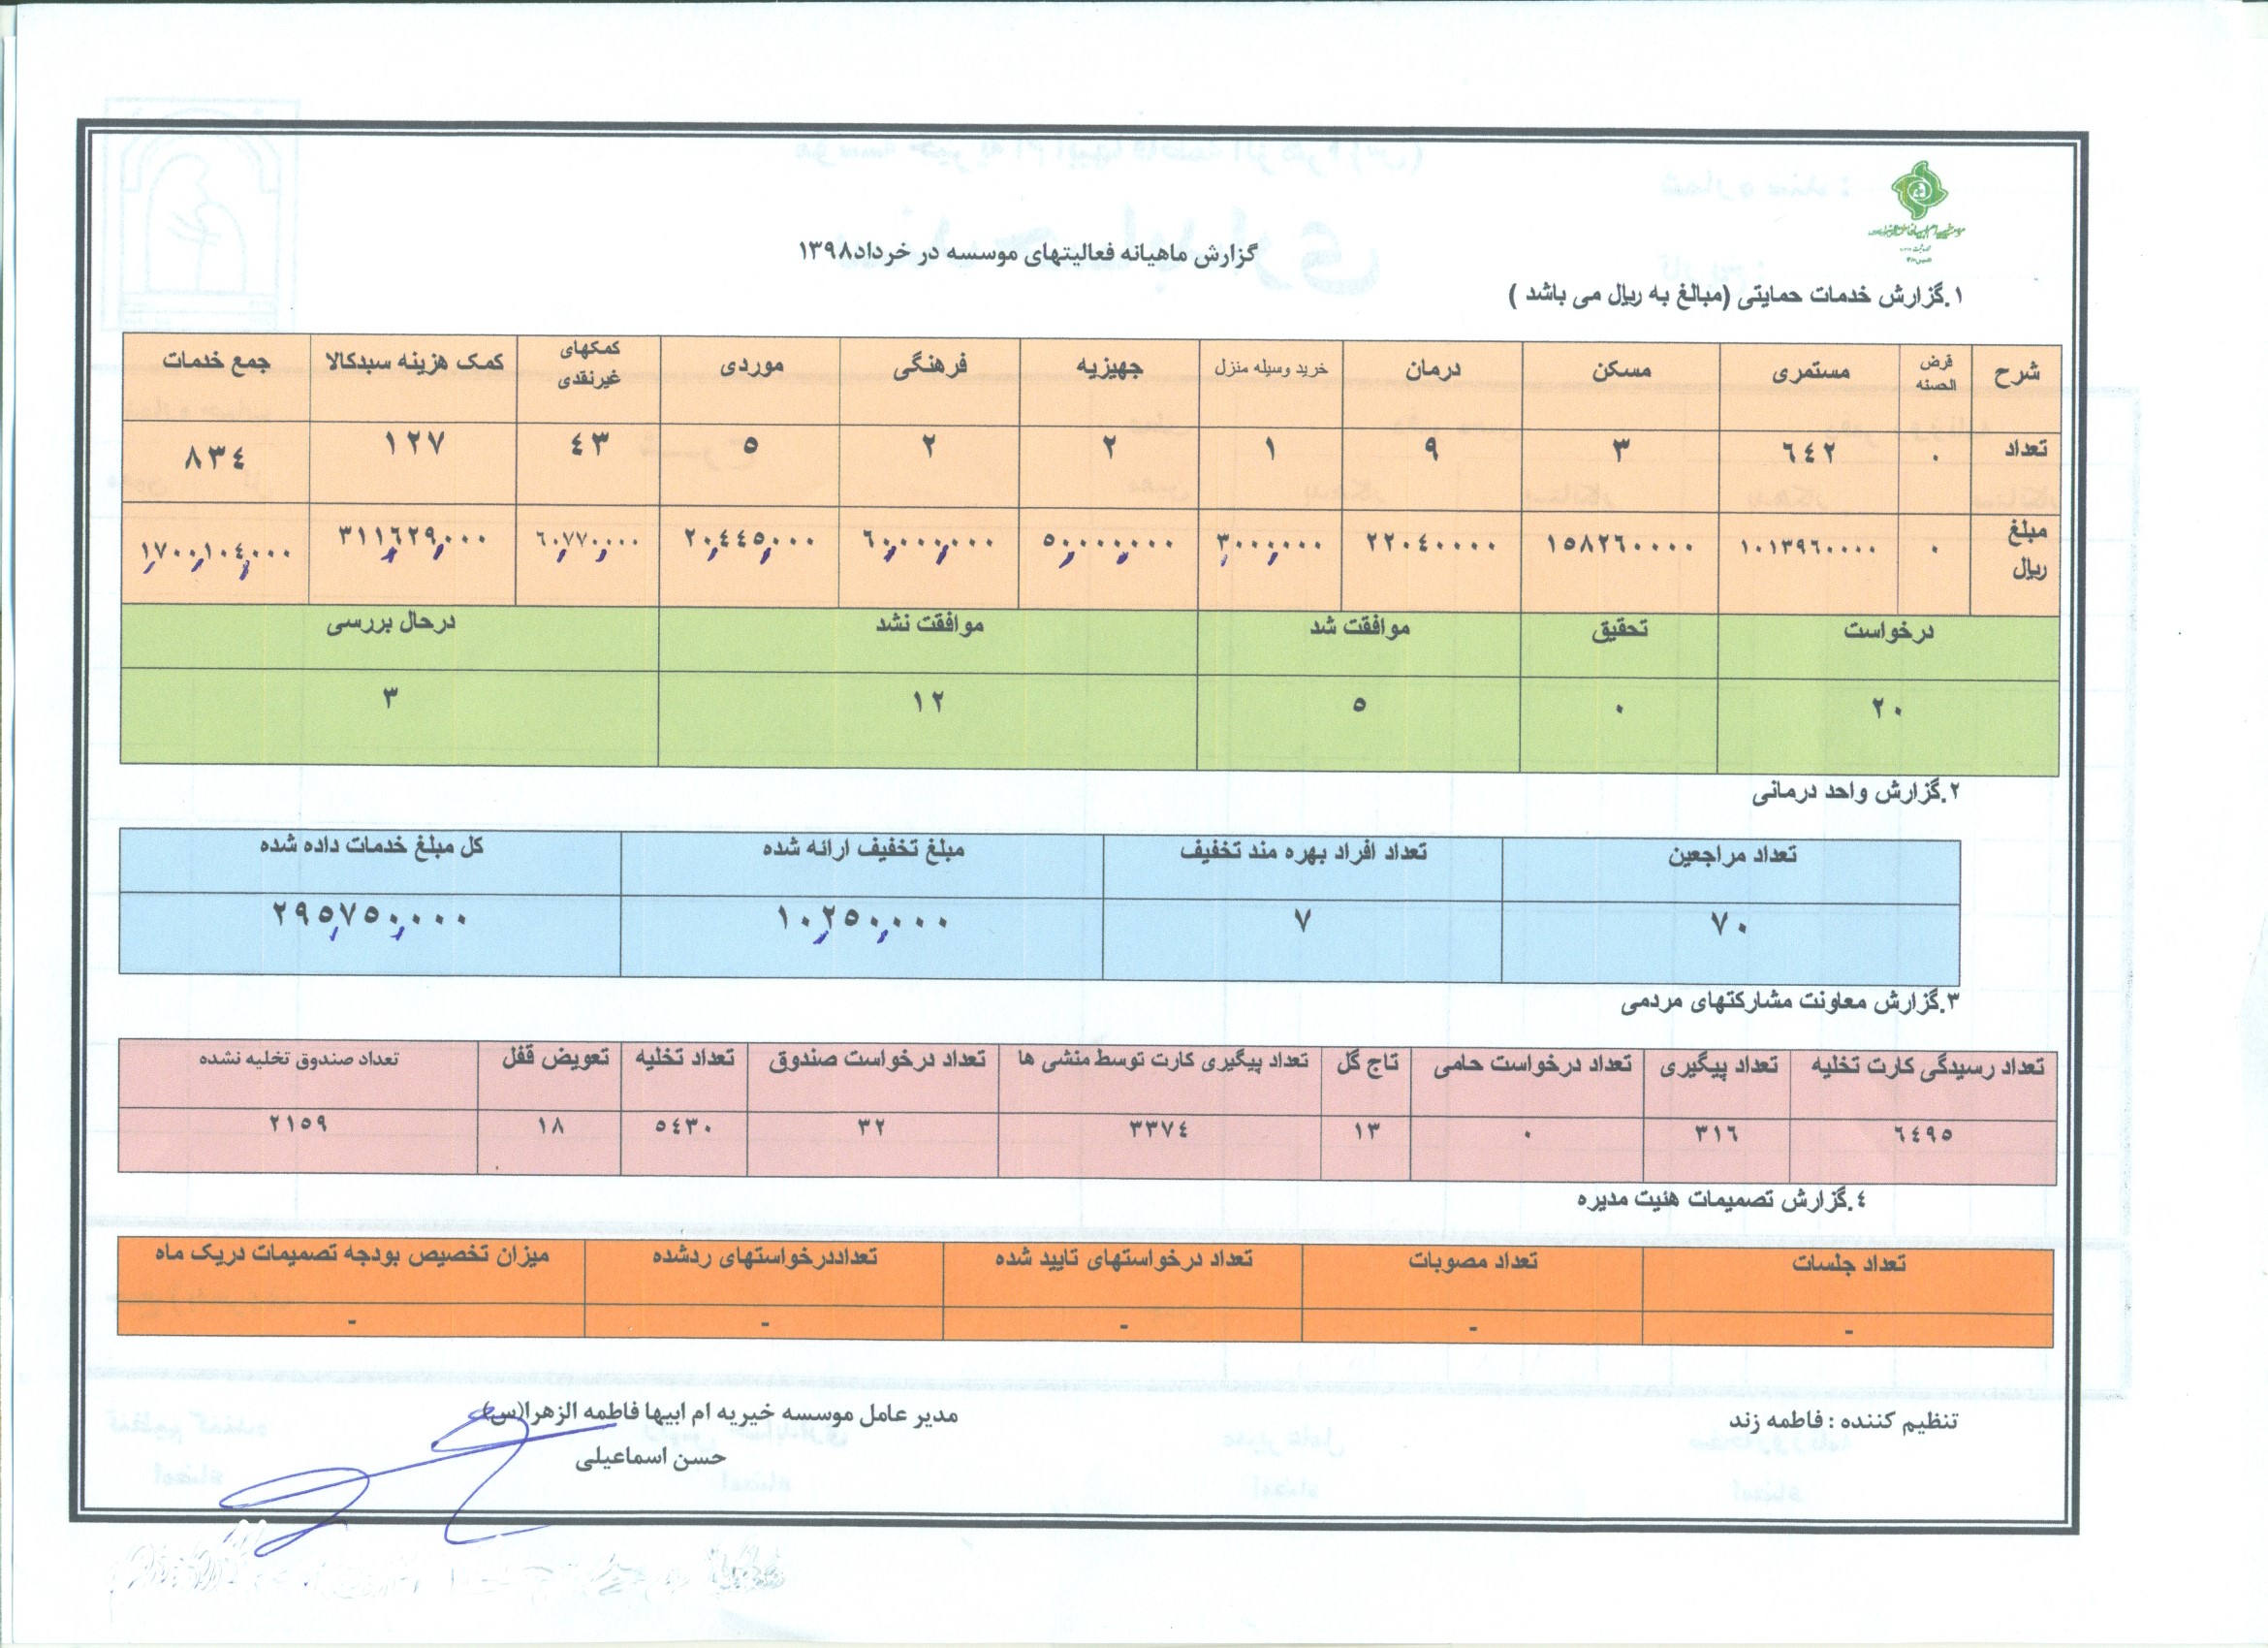 گزارش ماهیانه فعالیتهای موسسه در خرداد۱۳۹۸
۱.گزارش خدمات حمایتی (مبالغ به ریال می باشد )
شرح قرض الحسنه مستمری مسکن درمان خرید وسیله منزل جهیزیه فرهنگی موردی کمکهای غیرنقدی کمک هزینه سبدکالا جمع خدمات
تعداد ۰ ٦٤٢ ۳ ۹ ۱ ۲ ۲ ٥ ٤۳ ۱۲۷ ۸۳٤
مبلغ ریال ۰ ۱۰۱۳۹٦۰۰۰۰ ۱٥۸۲٦۰۰۰۰ ۲۲۰٤۰۰۰۰ ۳,۰۰۰,۰۰۰ ٥۰,۰۰۰,۰۰۰ ٦۰,۰۰۰,۰۰۰ ۲۰,٤٤٥,۰۰۰ ٦۰,۷۷۰,۰۰۰ ۳۱۱,٦۲۹,۰۰۰ ۱,۷۰۰,۱۰٤,۰۰۰
درخواست تحقیق موافقت شد موافقت نشد درحال بررسی
۲۰ ۰ ٥ ۱۲ ۳
۲.گزارش واحد درمانی
تعداد مراجعین تعداد افراد بهره مند تخفیف مبلغ تخفیف ارائه شده کل مبلغ خدمات داده شده
۷۰ ۷ ۱۰,۲٥۰,۰۰۰ ۲۹٥,۷٥۰,۰۰۰
۳.گزارش معاونت مشارکتهای مردمی
تعداد رسیدگی کارت تخلیه تعداد پیگیری تعداد درخواست حامی تاج گل تعداد پیگیری کارت توسط منشی ها تعداد درخواست صندوق تعداد تخلیه تعویض قفل تعداد صندوق تخلیه نشده
٦٤۹٥ ۳۱٦ ۰ ۱۳ ۳۳۷٤ ۳۲ ٥٤۳۰ ۱۸ ۲۱٥۹
٤.گزارش تصمیمات هئیت مدیره
تعداد جلسات تعداد مصوبات تعداد درخواستهای تایید شده تعداددرخواستهای ردشده میزان تخصیص بودجه تصمیمات دریک ماه
- - - - -
تنظیم کننده : فاطمه زند مدیر عامل موسسه خیریه ام ابیها فاطمه الزهرا(س)
حسن اسماعیلی